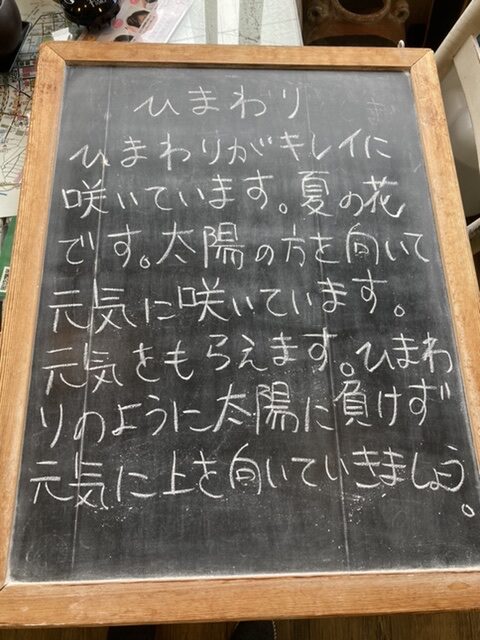 ひまわり
ひまわりがキレイに
咲いています。夏の花
です。太陽の方を向いて
元気に咲いています。
元気をもらえます。ひまわ
りのように太陽に負けず
元気に上を向いていきましょう。